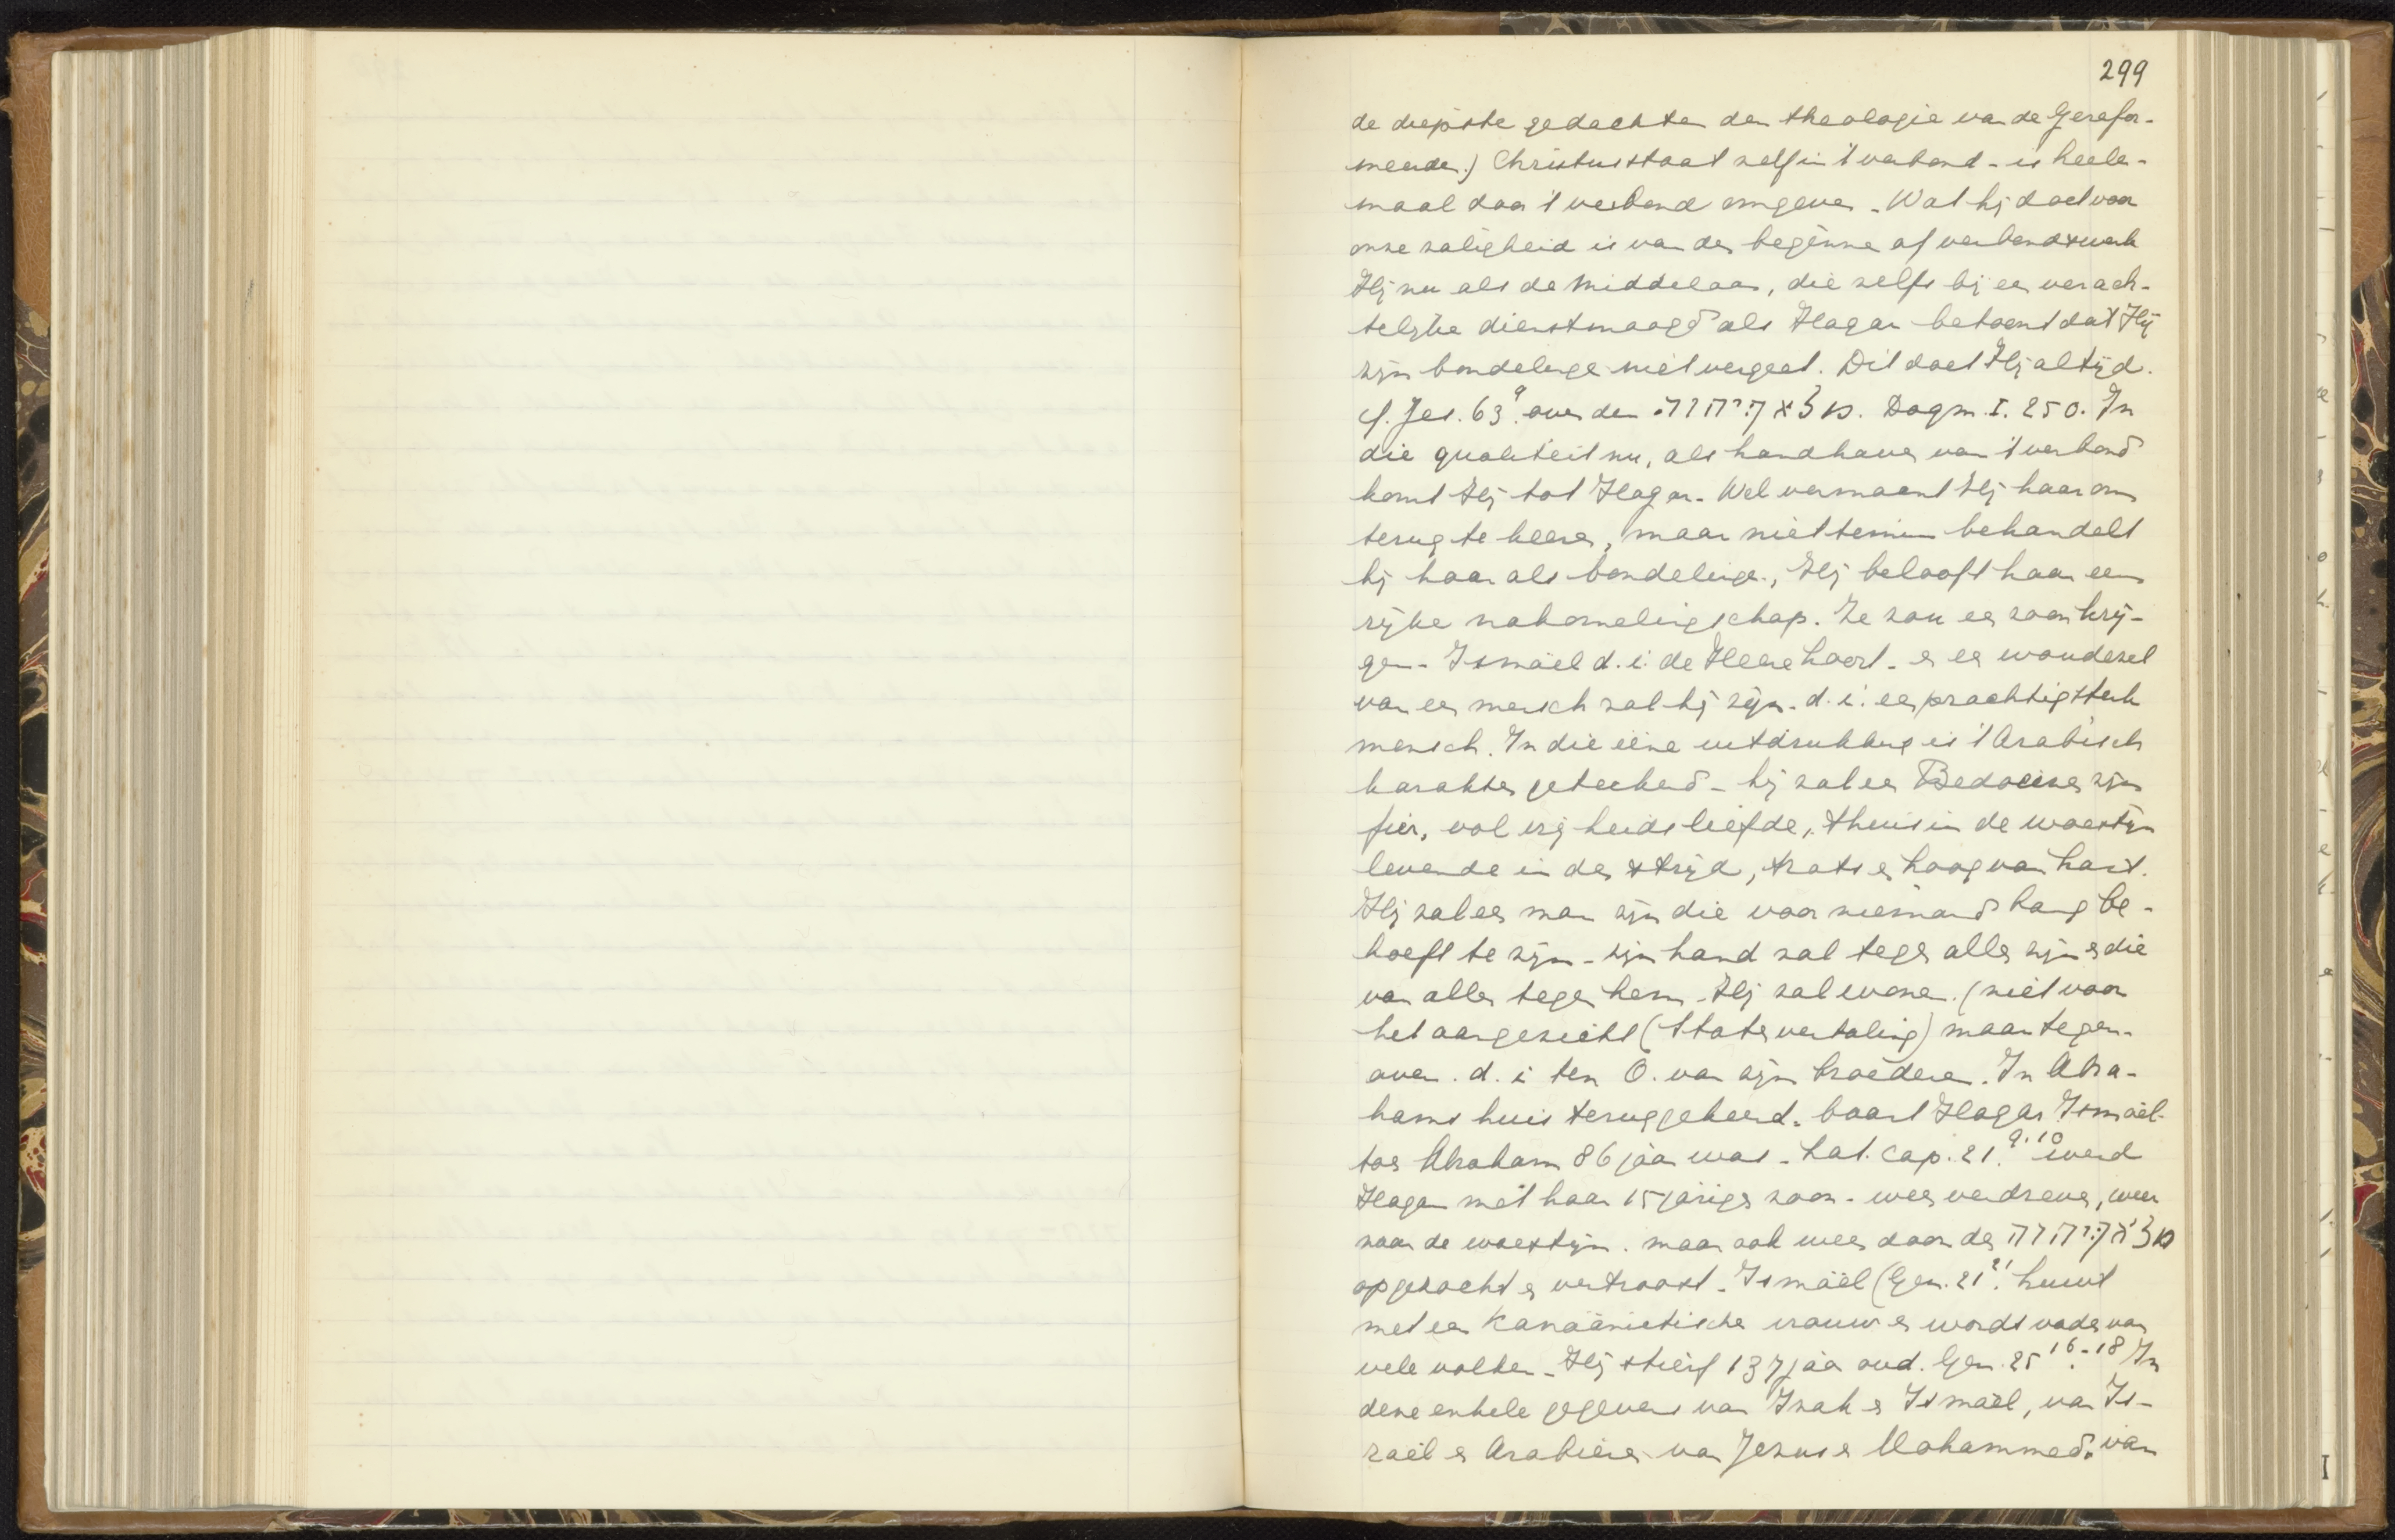 299
de diepste gedachten der theologie van de Gerefor-
meerden.) Christus staat zelf in 't verbond - is heele-
maal door 't verbond omgeven - Wat hij doet voor
onze zaligheid is van den beginne af verbondswerk
Hij nu als de Middelaar, die zelfs bij een verach-
telijke dienstmaagd als Hagar betoont dat Hij
zijn bondelinge niet vergeet. Dit doet Hij altijd.
cf. Jes. 63⁹. over den מלאך יהוה. Dogm. I. 250. In
die qualiteit nu, als handhaver van 't verbond
komt Hij tot Hagar. Wel vermaant Hij haar om
terug te keeren, maar niettemin behandelt
hij haar als bondelinge, Hij belooft haar een
rijke nakomelingschap. Ze zou een zoon krij-
gen - Ismaël d. i. de Heere hoort - en een woudezel
van een mensch zal hij zijn. d. i. een prachtig sterk
mensch. In die eene uitdrukking is 't Arabisch
karakter geteekend - hij zal een Bedoeine zijn
fier, vol vrijheidsliefde, thuis in de woestijn
levende in den strijd, trots en hoog van hart.
Hij zal een man zijn die voor niemand bang be-
hoeft te zijn - zijn hand zal tegen allen zijn en die
van allen tegen hem - Hij zal wonen (niet voor
het aangezicht (Statenvertaling) maar tegen-
over. d. i ten O. van zijn broederen. In Abra-
hams huis teruggekeerd, baart Hagar Ismaël
toen Abraham 86 jaar was - Lat. cap. 21.⁹·¹⁰ werd
Hagar met haar 15 jarigen zoon - weer verdreven, weer
naar de woestijn. maar ook weer door den מלאך יהוה
opgezocht en vertroost. Ismaël (Gen. 21²¹. huwt
met een Kanaänietische vrouw en wordt vader van
vele volken - Hij stierf 137 jaar oud. Gen. 25¹⁶·⁻¹⁸ In
deze enkele gegevens van Izak en Ismaël, van Is-
raël en Arabieren van Jezus en Mohammed. van